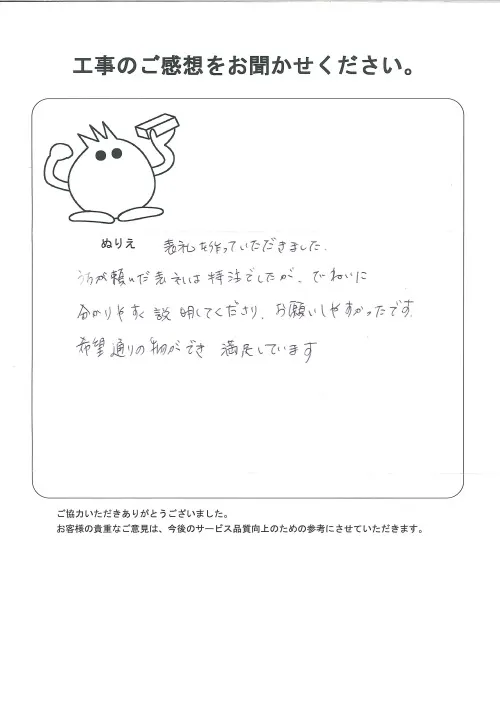 工事のご感想をお聞かせください。
ぬりえ
表札を作っていただきました。
うちが頼んだ表札は特注でしたが、ていねいに
分かりやすく説明してくださり、お願いしやすかったです。
希望通りの物ができ 満足しています
ご協力いただきありがとうございました。
お客様の貴重なご意見は、今後のサービス品質向上のための参考にさせていただきます。